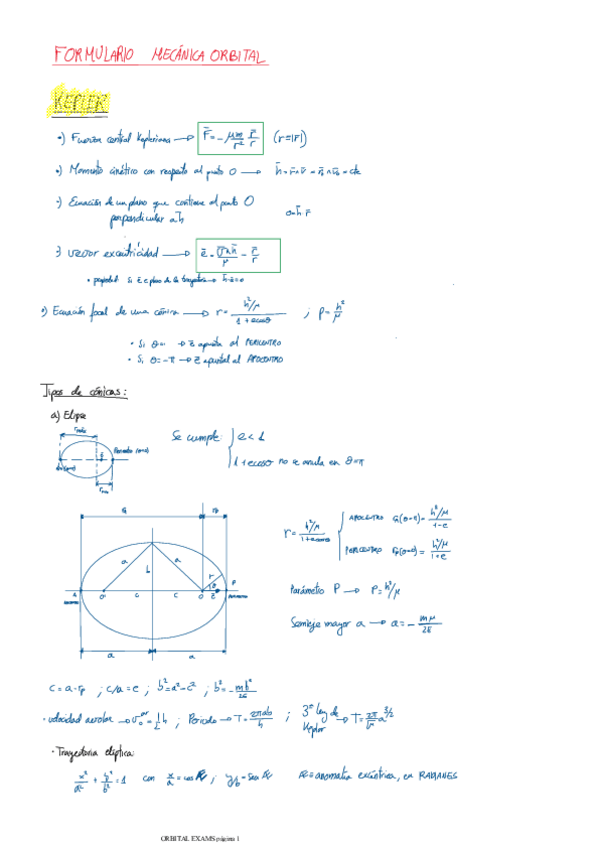 FORMULARIO MECÁNICA ORBITAL
KEPLER
·) Fuerza central Kepleriana → F̄ = - μm/r² r̄/r (r=|r̄|)
·) Momento cinético con respecto al punto O → h̄ = r̄ ∧ v̄ = r̄₀ ∧ v̄₀ = cte
·) Ecuación de un plano que contiene al punto O
perpendicular a h̄ 0 = h̄ · r̄
·) Vector excentricidad → ē = v̄ ∧ h̄/μ - r̄/r
·) Ecuación focal de una cónica → r = h²/μ / 1 + e cosθ ; p = h²/μ
• Si θ = → ē apunta al PERICENTRO
• Si θ = -π → ē apunta al APOCENTRO
Tipos de cónicas:
a) Elipse
Se cumple: e < 1
1 + e cosθ no se anula en θ = π
r = h²/μ / 1 + e cosθ
APOCENTRO (θ=π) = h²/μ / 1-e
PERICENTRO (θ=0) = h²/μ / 1+e
a a
b
r
c
O
P
Parámetro P → P = h²/μ
Semieje mayor a → a = - mμ/2E
a a
c = a - rp ; c/a = e ; b² = a² - c² ; b² = - mh²/2E
· velocidad aerolar → = 1/2 h ; Periodo → T = 2πab/h ; 3ª ley de Kepler → T = 2π/√μ a^3/2
· Trayectoria elíptica:
x²/a² + y²/b² = 1 con x/a = cos ; y/b = sen = anomalía excéntrica, en RADIANES
ORBITAL EXAMS página 1